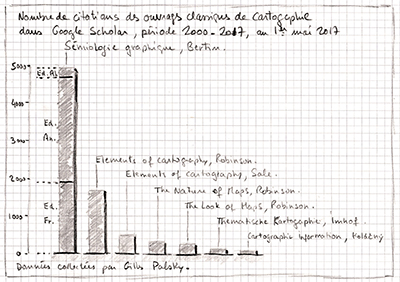 Nombre de citations des ouvrages classiques de cartographie
dans Google Scholar, période 2000-2017, au 1er mai 2017
Sémiologie graphique, Bertin.
5000
Ed. All
4000
Ed.
An.
2000
Ed.
Fr.
1000
0
Elements of cartography, Robinson.
Elements of cartography, Sale.
The Nature of Maps, Robinson.
The Look of Maps, Robinson.
Thematische Kartographie, Imhof.
Cartographic Information, Kolácný
Données collectées par Gilles Palsky.